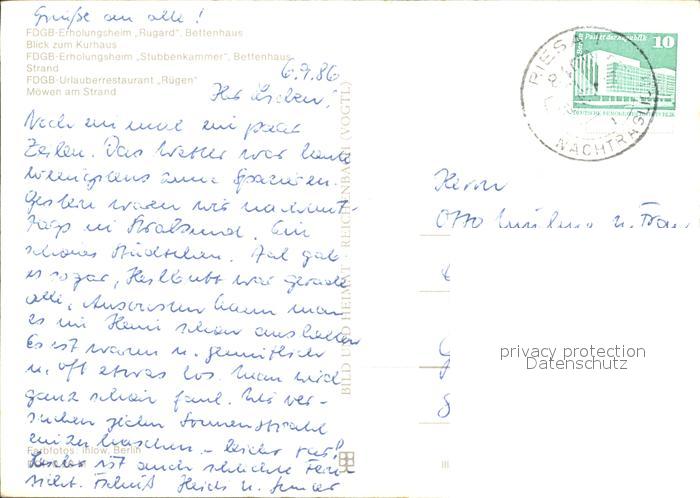 Grüße an alle!
FDGB-Erholungsheim „Rugard“, Bettenhaus
Blick zum Kurhaus
FDGB-Erholungsheim „Stubbenkammer“, Bettenhaus
Strand
FDGB-Urlauberrestaurant „Rügen“
Möwen am Strand
6.9.86
Ihr Lieben!
Noch einmal ein paar
Zeilen. Das Wetter war heute
wenigstens zum Spazieren.
Gestern waren wir nachmit-
tags in Stralsund. Ein
schönes Städtchen. Aal gab
es sogar, Heilbutt war gerade
alle. Ansonsten kann man
es im Heim schon aushalten
Es ist warm u. gemütlich
u. oft etwas los. Man wird
ganz schön faul. Wir ver-
suchen jeden Sonnenstrahl
zu erhaschen
ist auch schlechte Fern-
sicht. Tschüß
Farbfotos: Ihlow, Berlin
BILD UND HEIMAT REICHENBACH (VOGTL)
III
RIESA 1
NACHTRÄGL.
10
DEUTSCHE DEMOKRATISCHE REPUBLIK
Herrn
Otto u. Frau
privacy protection
Datenschutz